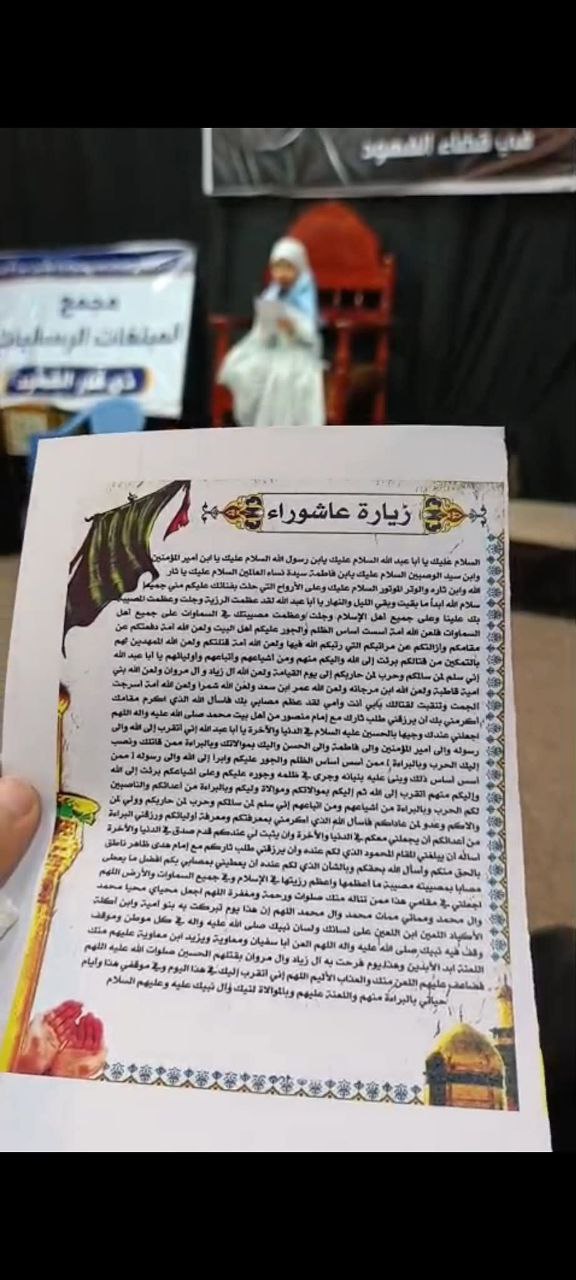 في قضاء الفهود
مجمع
المبلغات الرسالية
ذي قار الفهود
زيارة عاشوراء
السلام عليك يا أبا عبد الله السلام عليك يابن رسول الله السلام عليك يا ابن أمير المؤمنين
وابن سيد الوصيين السلام عليك يابن فاطمة سيدة نساء العالمين السلام عليك يا ثار
الله وابن ثاره والوتر الموتور السلام عليك وعلى الأرواح التي حلت بفنائك عليكم مني جميعا
سلام الله أبداً ما بقيت وبقي الليل والنهار يا أبا عبد الله لقد عظمت الرزية وجلت وعظمت المصيبة
بك علينا وعلى جميع أهل الإسلام وجلت وعظمت مصيبتك في السماوات على جميع أهل
السماوات فلعن الله أمة أسست أساس الظلم والجور عليكم أهل البيت ولعن الله أمة دفعتكم عن
مقامكم وأزالتكم عن مراتبكم التي رتبكم الله فيها ولعن الله أمة قتلتكم ولعن الله الممهدين لهم
بالتمكين من قتالكم برئت إلى الله واليكم منهم ومن أشياعهم وأتباعهم وأوليائهم يا أبا عبد الله
إني سلم لمن سالمكم وحرب لمن حاربكم إلى يوم القيامة ولعن الله آل زياد و آل مروان ولعن الله بني
أمية قاطبة ولعن الله ابن مرجانه ولعن الله عمر ابن سعد ولعن الله شمرا ولعن الله أمة أسرجت
الجمت وتنقبت لقتالك بأبي أنت وأمي لقد عظم مصابي بك فاسأل الله الذي أكرم مقامك
أكرمني بك أن يرزقني طلب ثارك مع إمام منصور من أهل بيت محمد صلى الله عليه واله اللهم
اجعلني عندك وجيها بالحسين عليه السلام في الدنيا والآخرة يا أبا عبد الله إني أتقرب إلى الله والى
رسوله والى أمير المؤمنين والى فاطمة والى الحسن واليك بموالاتك وبالبراءة ممن قاتلك ونصب
إليك الحرب وبالبراءة ممن أسس أساس الظلم والجور عليكم وابرا إلى الله والى رسوله ممن
أسس أساس ذلك وبنى عليه بنيانه وجرى في ظلمه وجوره عليكم وعلى أشياعكم برئت إلى الله
وإليكم منهم اتقرب إلى الله ثم إليكم بموالاتكم وموالاة وليكم وبالبراءة من أعدائكم والناصبين
لكم الحرب وبالبراءة من أشياعهم ومن اتباعهم إني سلم لمن سالمكم وحرب لمن حاربكم وولي لمن
والاكم وعدو لمن عاداكم فأسأل الله الذي أكرمني بمعرفتكم ومعرفة أوليائكم ورزقني البراءة
من أعدائكم أن يجعلني معكم في الدنيا والآخرة وان يثبت لي عندكم قدم صدق في الدنيا والآخرة
أسأله أن يبلغني المقام المحمود الذي لكم عنده وان يرزقني طلب ثاركم مع إمام هدى ظاهر ناطق
بالحق منكم وأسأل الله بحقكم وبالشأن الذي لكم عنده أن يعطيني بمصابي بكم افضل ما يعطى
مصابا بمصيبته مصيبة ما أعظمها واعظم رزيتها في الإسلام وفي جميع السماوات والأرض اللهم
اجعلني في مقامي هذا ممن تناله منك صلوات ورحمة ومغفرة اللهم اجعل محياي محيا محمد
وآل محمد ومماتي ممات محمد وال محمد اللهم إن هذا يوم تبركت به بنو أمية وابن أكلة
الأكباد اللعين ابن اللعين على لسانك ولسان نبيك صلى الله عليه واله في كل موطن وموقف
وقف فيه نبيك صلى الله عليه واله اللهم العن أبا سفيان ومعاوية ويزيد ابن معاوية عليهم منك
اللعنة ابد الأبدين وهذا يوم فرحت به آل زياد وال مروان بقتلهم الحسين صلوات الله عليه اللهم
فضاعف عليهم اللعن منك والعذاب الأليم اللهم إني أتقرب إليك في هذا اليوم وفي موقفي هذا وأيام
حياتي بالبراءة منهم واللعنة عليهم وبالموالاة لنبيك وآل نبيك عليه وعليهم السلام